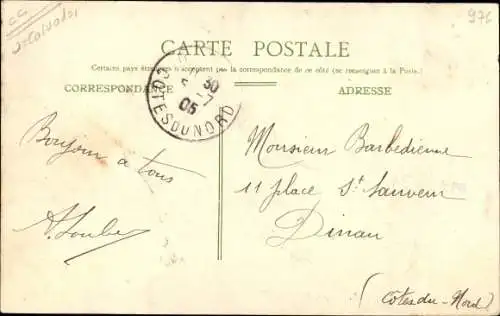 976
CARTE POSTALE
Certains pays étrangers n'acceptent pas la correspondance de ce côté (se renseigner à la Poste.)
CORRESPONDANCE
ADRESSE
COTES DU NORD
05
Bonjour à tous
Monsieur Barbedienne
11 place St Sauveur
Dinan
(Côtes du Nord)